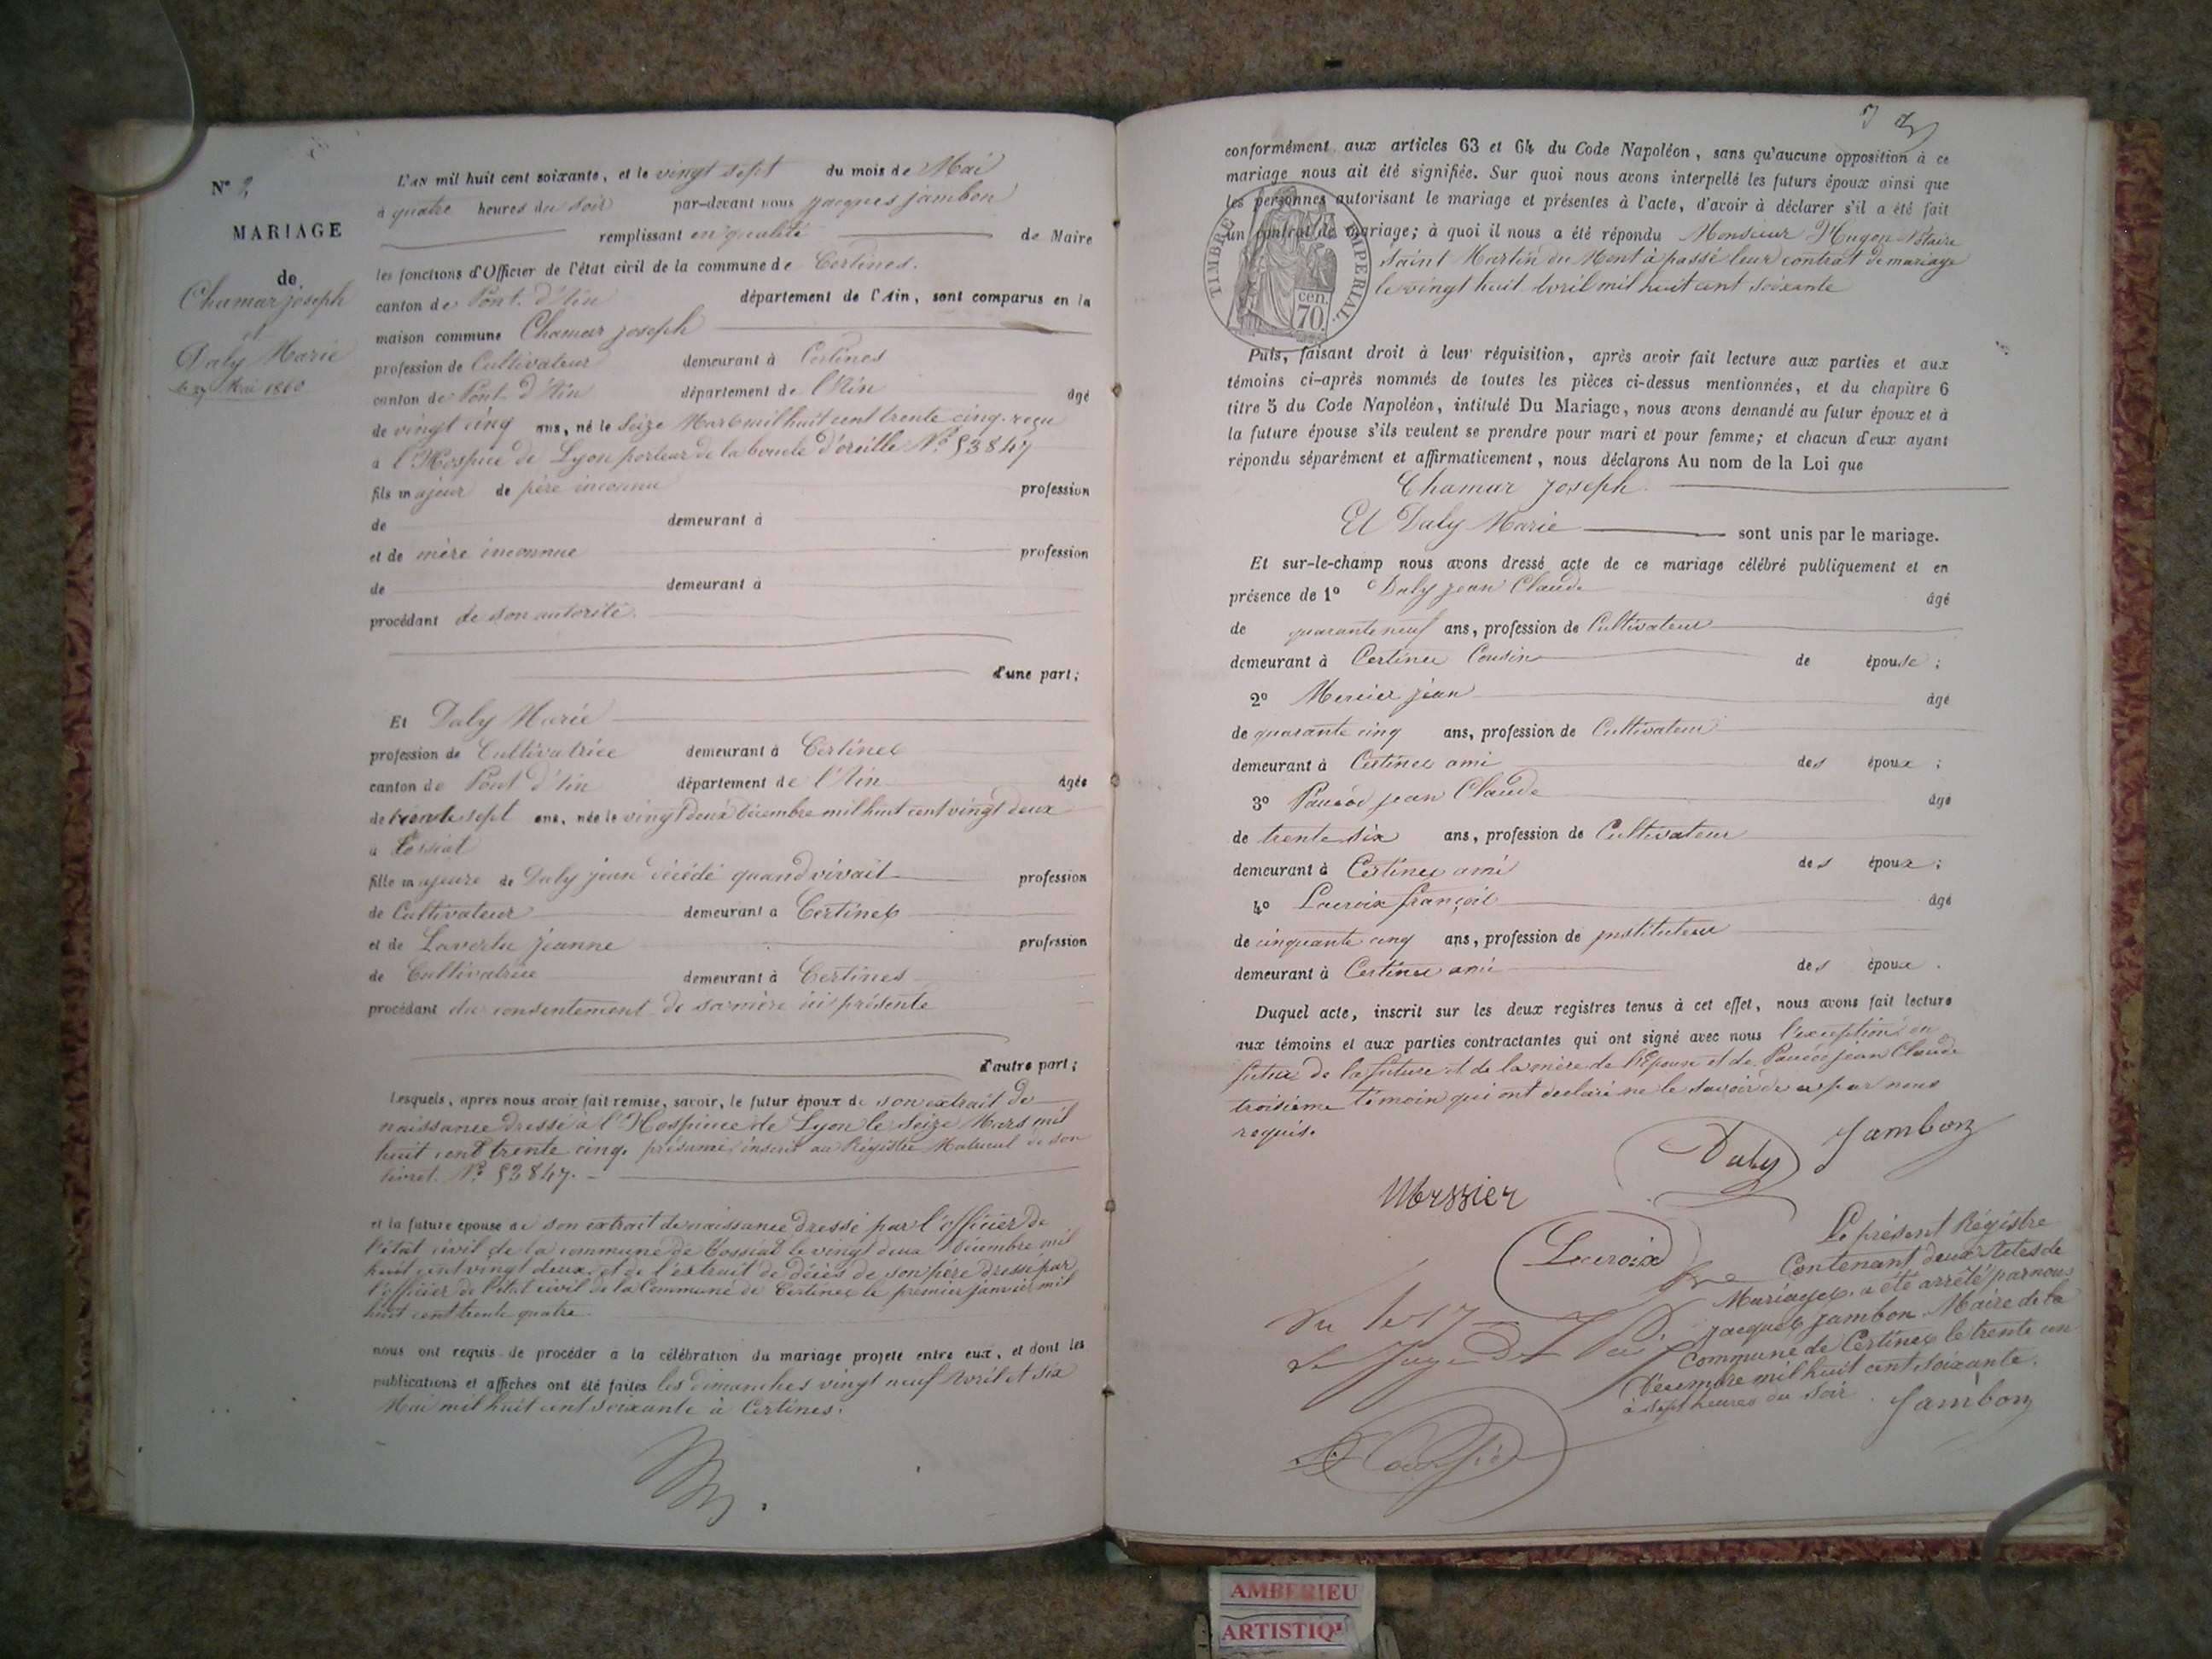 N° 2
MARIAGE
de
Chamar joseph
et
Daly Marie
le 27 Mai 1860
L'AN mil huit cent soixante, et le vingt sept du mois de Mai
à quatre heures du soir par-devant nous jacques jambon
remplissant en qualité de Maire
les fonctions d'Officier de l'état civil de la commune de Certines.
canton de Pont d'Ain département de l'Ain, sont comparus en la
maison commune Chamar joseph
profession de Cultivateur demeurant à Certines
canton de Pont d'Ain département de l'Ain âgé
de vingt cinq ans, né le seize Mars mil huit cent trente cinq. reçu
à l'Hospice de Lyon porteur de la boucle d'oreille N° 53847
fils majeur de père inconnu profession
de demeurant à
et de mère inconnue profession
de demeurant à
procédant de son autorité.
d'une part;
Et Daly Marie
profession de Cultivatrice demeurant à Certines
canton de Pont d'Ain département de l'Ain âgée
de trente sept ans, née le vingt deux Décembre mil huit cent vingt deux
à Tossiat
fille majeure de Daly jean décédé quand vivait profession
de Cultivateur demeurant à Certines
et de Lavertu jeanne profession
de Cultivatrice demeurant à Certines
procédant du consentement de sa mère ici présente
d'autre part;
Lesquels, après nous avoir fait remise, savoir, le futur époux de son extrait de
naissance dressé à l'Hospice de Lyon le seize Mars mil
huit cent trente cinq. présumé inscrit au Régistre Matricul de son
livret. N° 53847.
et la future épouse de son extrait de naissance dressé par l'officier de
l'état civil de la commune de Tossiat le vingt deux Décembre mil
huit cent vingt deux, et de l'extrait de décès de son père dressé par
l'officier de l'état civil de la Commune de Certines le premier janvier mil
huit cent trente quatre.
nous ont requis de procéder à la célébration du mariage projeté entre eux, et dont les
publications et affiches ont été faites les dimanches vingt neuf Avril et six
Mai mil huit cent soixante à Certines.
conformément aux articles 63 et 64 du Code Napoléon, sans qu'aucune opposition à ce
mariage nous ait été signifiée. Sur quoi nous avons interpellé les futurs époux ainsi que
les personnes autorisant le mariage et présentes à l'acte, d'avoir à déclarer s'il a été fait
un contrat de mariage; à quoi il nous a été répondu Monsieur Hugon Notaire
saint Martin du Mont à passé leur contrat de mariage
le vingt huit Avril mil huit cent soixante
TIMBRE IMPERIAL
70 cen.
Puis, faisant droit à leur réquisition, après avoir fait lecture aux parties et aux
témoins ci-après nommés de toutes les pièces ci-dessus mentionnées, et du chapitre 6
titre 5 du Code Napoléon, intitulé Du Mariage, nous avons demandé au futur époux et à
la future épouse s'ils veulent se prendre pour mari et pour femme; et chacun d'eux ayant
répondu séparément et affirmativement, nous déclarons Au nom de la Loi que
Chamar joseph
Et Daly Marie sont unis par le mariage.
Et sur-le-champ nous avons dressé acte de ce mariage célébré publiquement et en
présence de 1° Daly jean Claude âgé
de quarante neuf ans, profession de Cultivateur
demeurant à Certines Cousin de épouse;
2° Mercier jean âgé
de quarante cinq ans, profession de Cultivateur
demeurant à Certines ami des époux;
3° jean Claude âgé
de trente six ans, profession de Cultivateur
demeurant à Certines ami des époux;
4° Lacroix françois âgé
de cinquante cinq ans, profession de instituteur
demeurant à Certines ami des époux.
Duquel acte, inscrit sur les deux registres tenus à cet effet, nous avons fait lecture
aux témoins et aux parties contractantes qui ont signé avec nous l'exception
futur de la future et de la mère de l'Epouse et de jean Claude
troisième témoin qui ont déclaré ne le savoir de ce par nous
requis.
Daly Jambon
Merssier
Lacroix
Le présent Régistre
Contenant deux Actes de
Mariages, a été arrêté par nous
jacques jambon Maire de la
Commune de Certines le trente un
Décembre mil huit cent soixante.
à sept heures du soir. Jambon
Vu le 17
le juge de Paix
AMBERIEU
ARTISTIQ